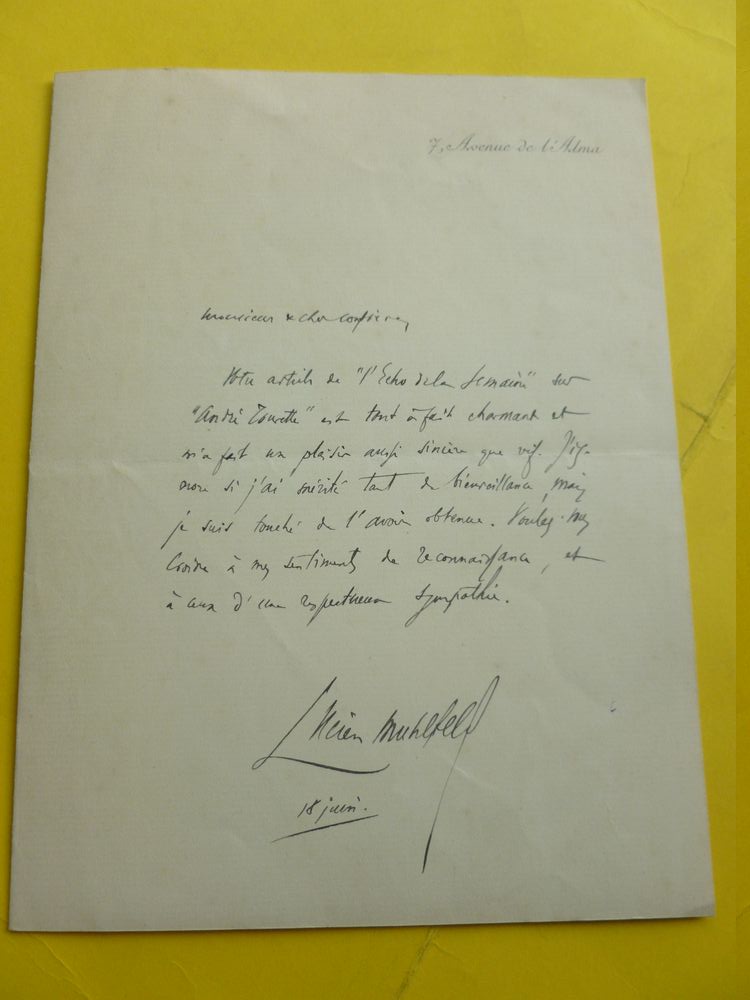 7, Avenue de l'Alma
Monsieur & cher confrère,
Votre article de "l'Echo de la Semaine" sur
"André Tourette" est tout à fait charmant et
m'a fait un plaisir aussi sincère que vif. J'ig-
nore si j'ai mérité tant de bienveillance, mais
je suis touché de l'avoir obtenue. Voulez-vous
croire à mes sentiments de reconnaissance, et
à ceux d'une respectueuse sympathie.
Lucien Muhlfeld
18 juin.